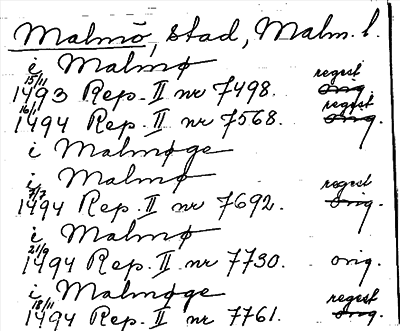 Malmö, stad, Malm. l.
i Malmø
15/11 regest
1493 Rep. II nr 7498. orig.
16/1 regest
1494 Rep. II nr 7568. orig.
i Malmøge
i Malmø
7/7 regest
1494 Rep. II nr 7692. orig.
i Malmø
21/9
1494 Rep. II nr 7730. orig.
i Malmøge
18/11 regest
1494 Rep. II nr 7761. orig.